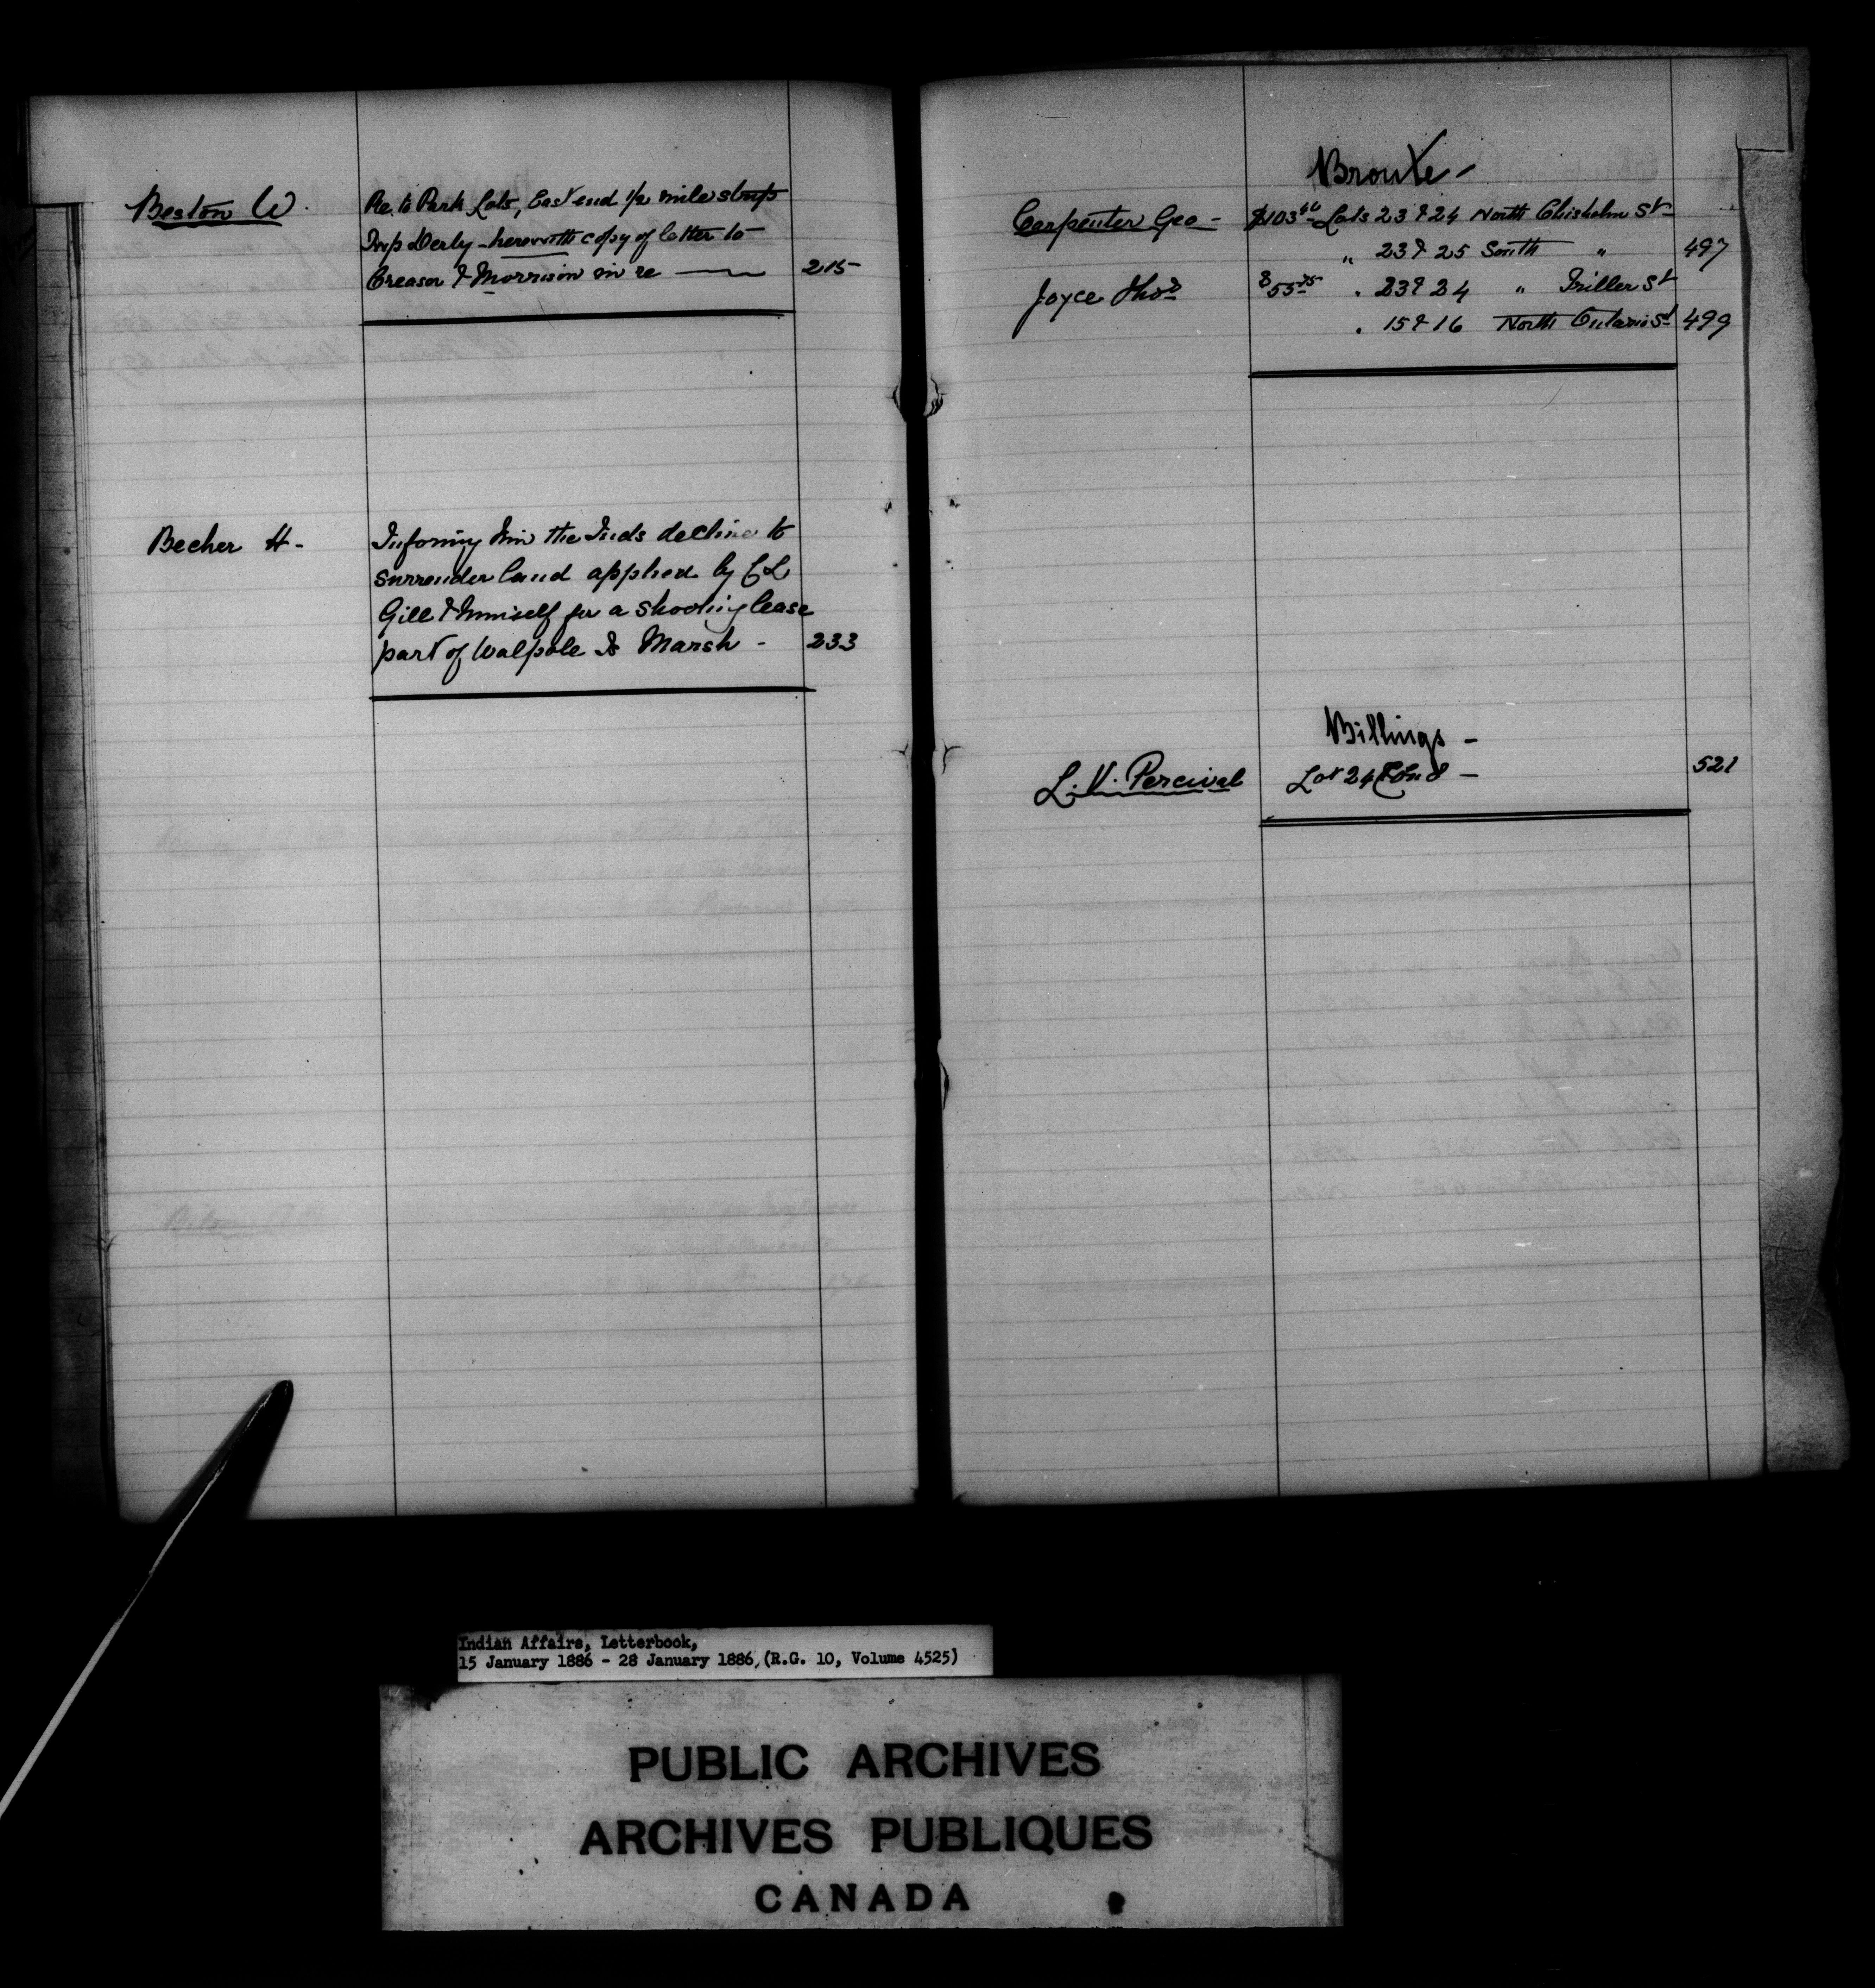 Beston W.
Re. to Park Lots, East end 1/2 mile strip
Twp Derby - herewith copy of letter to
Creasor & Morrison in re — 215
Becher H -
Informing him the Inds decline to
surrender land applied by C L
Gill & himself for a shooting lease
part of Walpole Is Marsh - 233
Bronte -
Carpenter Geo - $103 Lots 23 & 24 North Chisholm St
" 23 & 25 South " 497
Joyce Thos $55 " 23 & 24 " Triller St
" 15 & 16 North Ontario St 499
Billings -
L. V. Percival Lot 24 Con 8 - 521
Indian Affairs, Letterbook,
15 January 1886 - 28 January 1886, (R.G. 10, Volume 4525)
PUBLIC ARCHIVES
ARCHIVES PUBLIQUES
CANADA